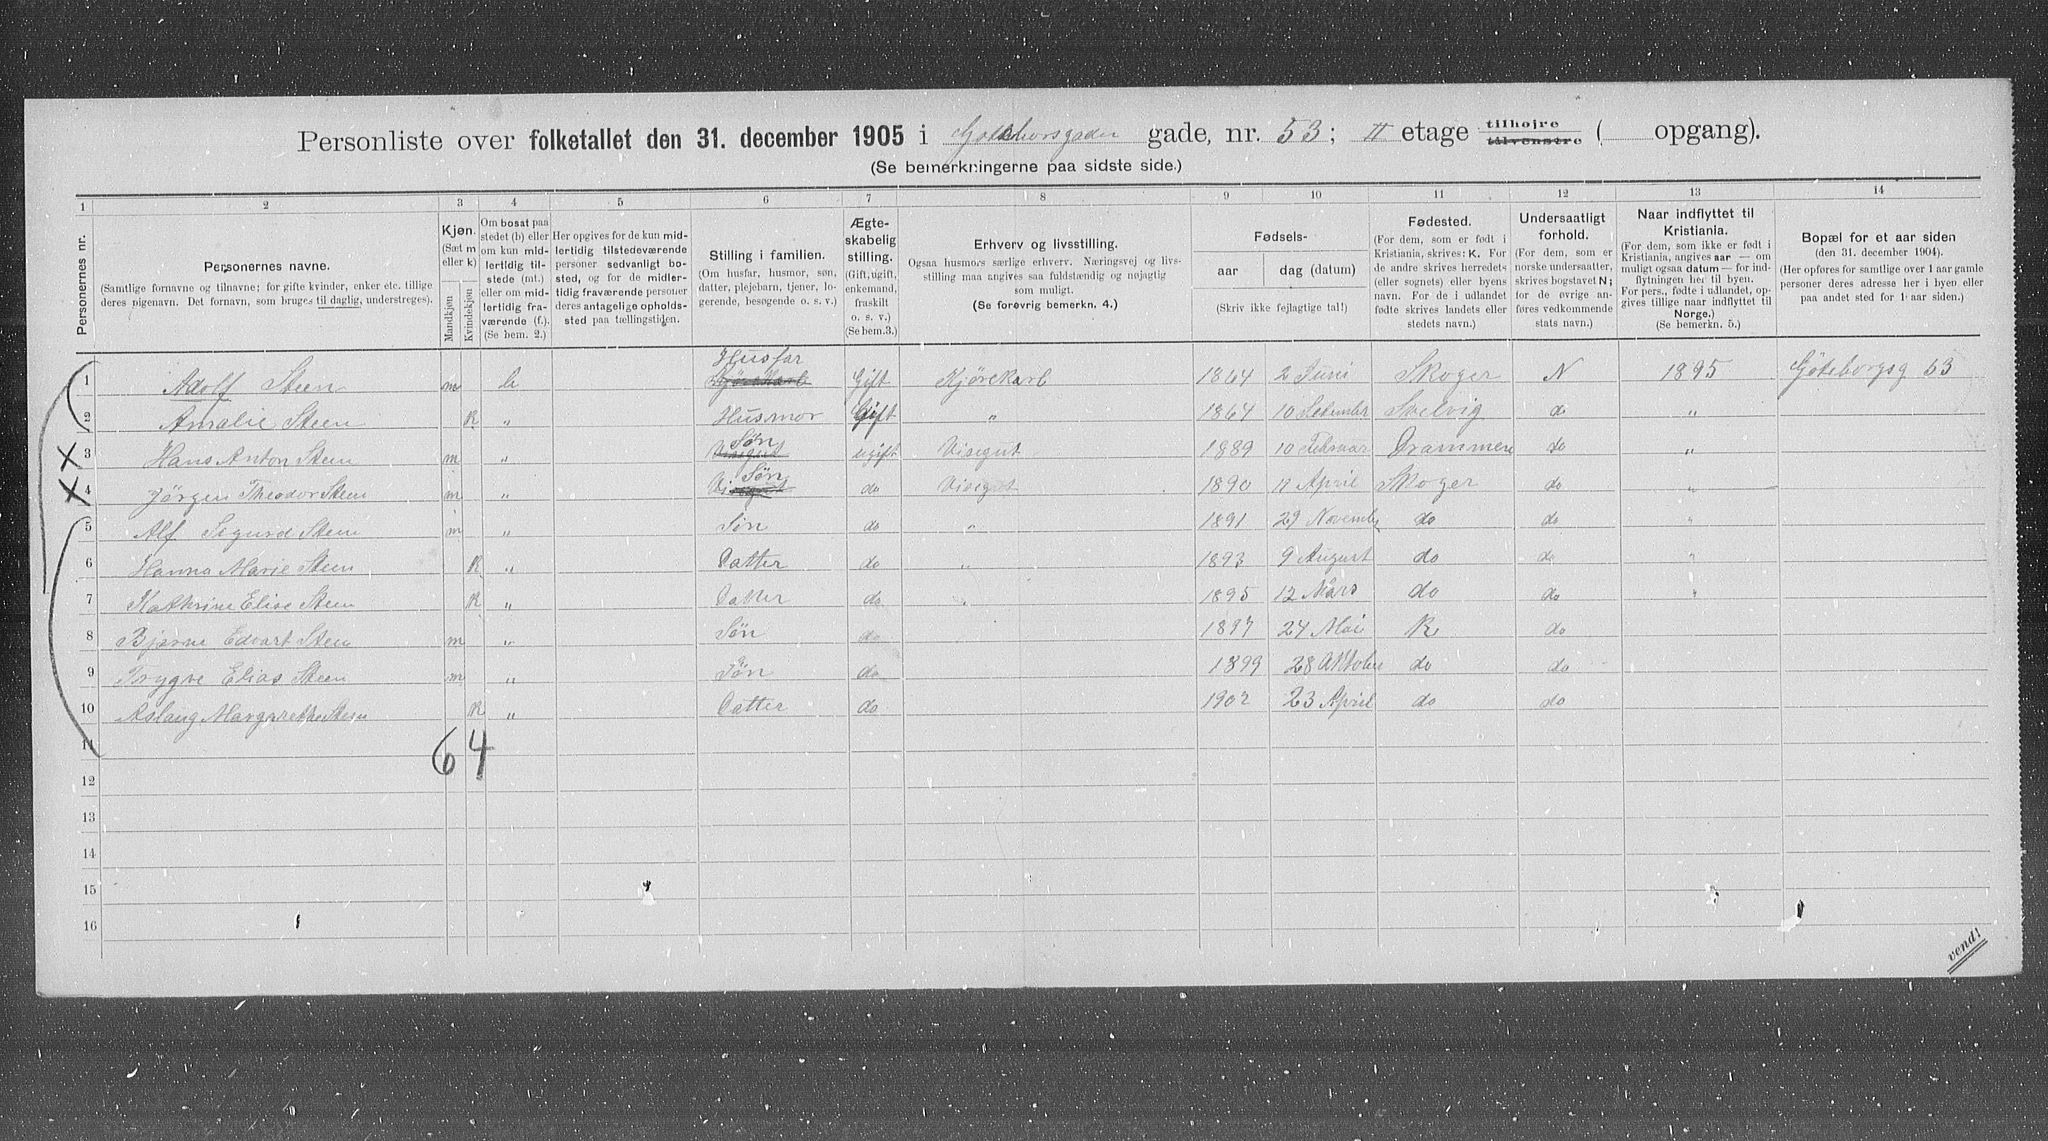 Personliste over folketallet den 31. december 1905 i gade, nr. 53; II etage tilhøjre tilvenstre ( opgang).
(Se bemerkningerne paa sidste side.)
1 2 3 4 5 6 7 8 9 10 11 12 13 14
Personernes nr.
Personernes navne.
(Samtlige fornavne og tilnavne; for gifte kvinder, enker etc. tillige
deres pigenavn. Det fornavn, som bruges til daglig, understreges).
Kjøn.
(Sæt m
eller k)
Mandkjøn
Kvindekjøn
Om bosat paa
stedet (b) eller
om kun mid-
lertidig til-
stede (mt.)
eller om mid-
lertidig fra-
værende (f.).
(Se bem. 2.)
Her opgives for de kun mid-
lertidig tilstedeværende
personer sedvanlig bo-
sted, og for de midler-
tidig fraværende personer
deres antagelige opholds-
sted paa tællingstiden.
Stilling i familien.
(Om husfar, husmor, søn,
datter, plejebarn, tjener, lo-
gerende, besøgende o. s. v.)
Ægte-
skabelig
stilling.
(Gift, ugift,
enkemand,
fraskilt
o. s. v.)
(Se bem. 3.)
Erhverv og livsstilling.
Ogsaa husmors særlige erhverv. Næringsvej og livs-
stilling maa angives saa fuldstændig og nøjagtig
som muligt.
(Se forøvrig bemerkn. 4.)
Fødsels-
aar dag (datum)
(Skriv ikke fejlagtige tal!)
Fødested.
(For dem, som er født i
Kristiania, skrives: K. For
de andre skrives herredets
(eller sognets) eller byens
navn. For de i udlandet
fødte skrives landets eller
stedets navn.)
Undersaatligt
forhold.
(For dem, der er
norske undersaatter,
skrives bogstavet N;
for de øvrige an-
føres vedkommende
stats navn.)
Naar indflyttet til
Kristiania.
(For dem, som ikke er født i
Kristiania, angives aar — om
muligt ogsaa datum — for ind-
flytningen her til byen.
For pers., fødte i udlandet, op-
gives tillige naar indflyttet til
Norge.)
(Se bemerkn. 5.)
Bopæl for et aar siden
(den 31. december 1904).
(Her opføres for samtlige over 1 aar gamle
personer deres adresse her i byen eller
paa andet sted for 1 aar siden.)
Husfar
1 Adolf Steen m b Kjörekarl Gift Kjörekarl 1864 2 Juni Skoger N 1895 Göteborgsg 53
2 Amalie Steen k " Husmor Gift " 1864 Svelvig do "
Søn
3 Hans Anton Steen m " Visegut ugift Visegut 1889 10 Februar Drammen do "
Søn
4 Jörgen Theodor Steen m " Visegut do Visegut 1890 April Skoger do "
5 Alf Sigurd Steen m " Søn do " 1891 29 November do do "
6 Hanna Marie Steen k " Datter do " 1893 9 August do do "
7 Kathrine Elise Steen k " Datter do " 1895 12 Mars do do "
8 Bjarne Edvart Steen m " Søn do 1897 24 Mai K do
9 Trygve Elias Steen m " Søn do 1899 28 Oktober do do
10 Aslaug Margarethe Steen k " Datter do 1902 23 April do do
11
6 4
12
13
14
15
16
vend!